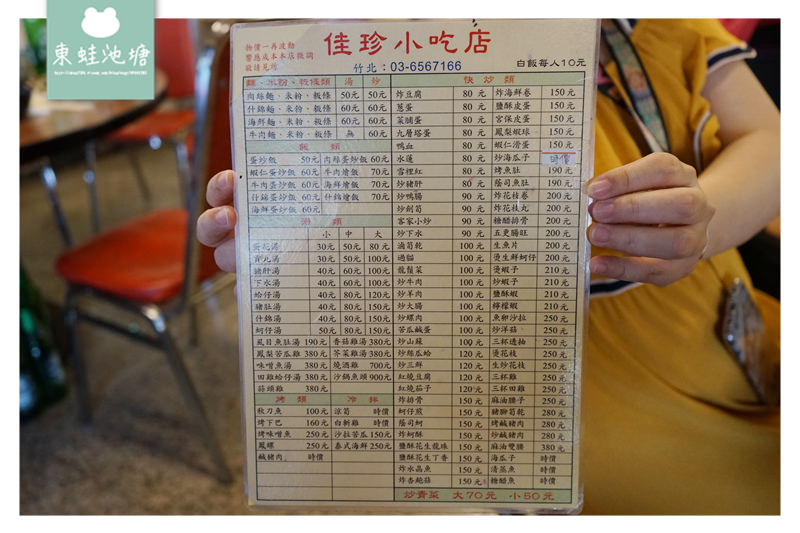 東蛙池塘
物價一再波動
響應成本本店微調
敬請見諒
佳珍小吃店
竹北：03-6567166
白飯每人10元
麵、米粉、粄條類 湯 炒
肉絲麵、米粉、粄條 50元 50元
什錦麵、米粉、粄條 60元 60元
海鮮麵、米粉、粄條 60元 60元
牛肉麵、米粉、粄條 無 60元
飯類
蛋炒飯 50元 肉絲蛋炒飯 60元
蝦仁蛋炒飯 60元 牛肉燴飯 70元
牛肉蛋炒飯 60元 海鮮燴飯 70元
什錦蛋炒飯 60元 什錦燴飯 70元
海鮮蛋炒飯 60元
湯類
小 中 大
蛋花湯 30元 50元 80元
貢丸湯 30元 50元 100元
豬肝湯 40元 60元 100元
下水湯 40元 60元 100元
蛤仔湯 40元 80元 120元
豬肚湯 40元 80元 150元
什錦湯 40元 80元 150元
蚵仔湯 50元 80元 150元
虱目魚肚湯 190元 香菇雞湯 380元
鳳梨苦瓜雞 380元 芥菜雞湯 380元
味噌魚湯 380元 燒酒雞 700元
田雞蛤仔湯 380元 沙鍋魚頭 900元
蒜頭雞 380元
烤類 冷拌
秋刀魚 100元 涼筍 時價
烤下巴 160元 白斬雞 時價
烤味噌魚 250元 沙拉苦瓜 150元
鳳螺 250元 泰式海鮮 250元
鹹豬肉 時價
快炒類
炸豆腐 80元 炸海鮮卷 150元
蔥蛋 80元 鹽酥皮蛋 150元
菜脯蛋 80元 宮保皮蛋 150元
九層塔蛋 80元 鳳梨蝦球 150元
鴨血 80元 蝦仁滑蛋 150元
水蓮 80元 炒海瓜子 時價
雪裡紅 80元 烤魚肚 190元
炒豬肝 80元 蔭司魚肚 190元
炒鴨腸 90元 炸花枝卷 200元
炒劍筍 90元 炸花枝丸 200元
客家小炒 90元 糖醋排骨 200元
炒下水 90元 五更腸旺 200元
滷筍乾 100元 生魚片 200元
過貓 100元 燙生鮮蚵仔 200元
龍鬚菜 100元 燙蝦子 210元
炒牛肉 100元 炒蝦子 210元
炒羊肉 100元 鹽酥蝦 210元
炒大腸 100元 檸檬蝦 210元
炒螺肉 100元 魚卵沙拉 250元
苦瓜鹹蛋 100元 炒洋菇 250元
炒山蘇 100元 三杯透抽 250元
炒絲瓜蛤 120元 燙花枝 250元
炒三鮮 120元 生炒花枝 250元
紅燒豆腐 120元 三杯雞 250元
紅燒茄子 120元 三杯田雞 250元
炸排骨 150元 麻油腰子 250元
蚵仔煎 150元 豬腳筍乾 280元
蔭司蚵 150元 烤鹹豬肉 280元
炸蚵酥 150元 炒鹹豬肉 280元
鹽酥花生龍珠 150元 麻油雙腰 380元
鹽酥花生丁香 150元 海瓜子 時價
炸水晶魚 150元 清蒸魚 時價
炸杏鮑菇 150元 糖醋魚 時價
炒青菜 大70元 小50元